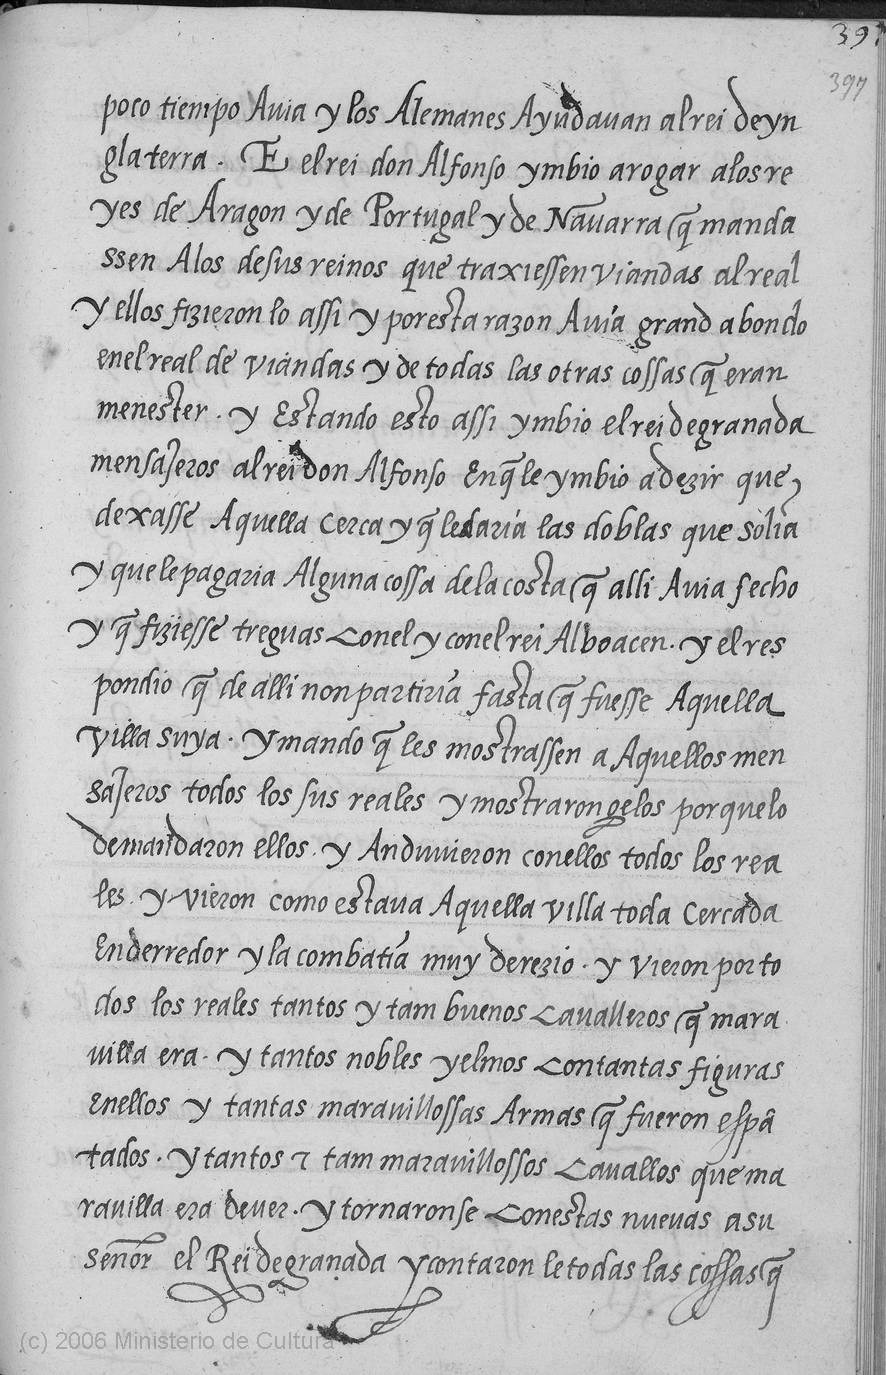 39
397
poco tiempo Auia y los Alemanes Ayudauan al rei de yn
glaterra . E el rei don Alfonso ymbio a rogar a los re
yes de Aragon y de Portugal y de Nauarra q̃ manda
ssen A los de sus reinos que traxiessen viandas al real
y ellos fizieron lo assi y por esta razon Auia grand abondo
en el real de viandas y de todas las otras cossas q̃ eran
menester . y Estando esto assi ymbio el rei de granada
mensajeros al rei don Alfonso En q̃ le ymbio a dezir que
dexasse Aquella Cerca y q̃ le daria las doblas que solia
y que le pagaria Alguna cossa de la costa q̃ alli Auia fecho
y q̃ fiziesse treguas Con el y con el rei Alboacen . y el res
pondio q̃ de alli non partiria fasta q̃ fuesse Aquella
villa suya . y mando q̃ les mostrassen a Aquellos men
sajeros todos los sus reales y mostraron gelos porque lo
demandaron ellos . y Anduuieron con ellos todos los rea
les . y vieron como estaua Aquella villa toda Cercada
Enderredor y la combatia muy de rezio . y vieron por to
dos los reales tantos y tam buenos Caualleros q̃ mara
uilla era . y tantos nobles yelmos Con tantas figuras
En ellos y tantas marauillossas Armas q̃ fueron espã
tados . y tantos τ tam marauillossos Cauallos que ma
rauilla era de uer . y tornaronse Con estas nueuas a su
señor el Rei de granada y contaron le todas las cossas q̃
(c) 2006 Ministerio de Cultura